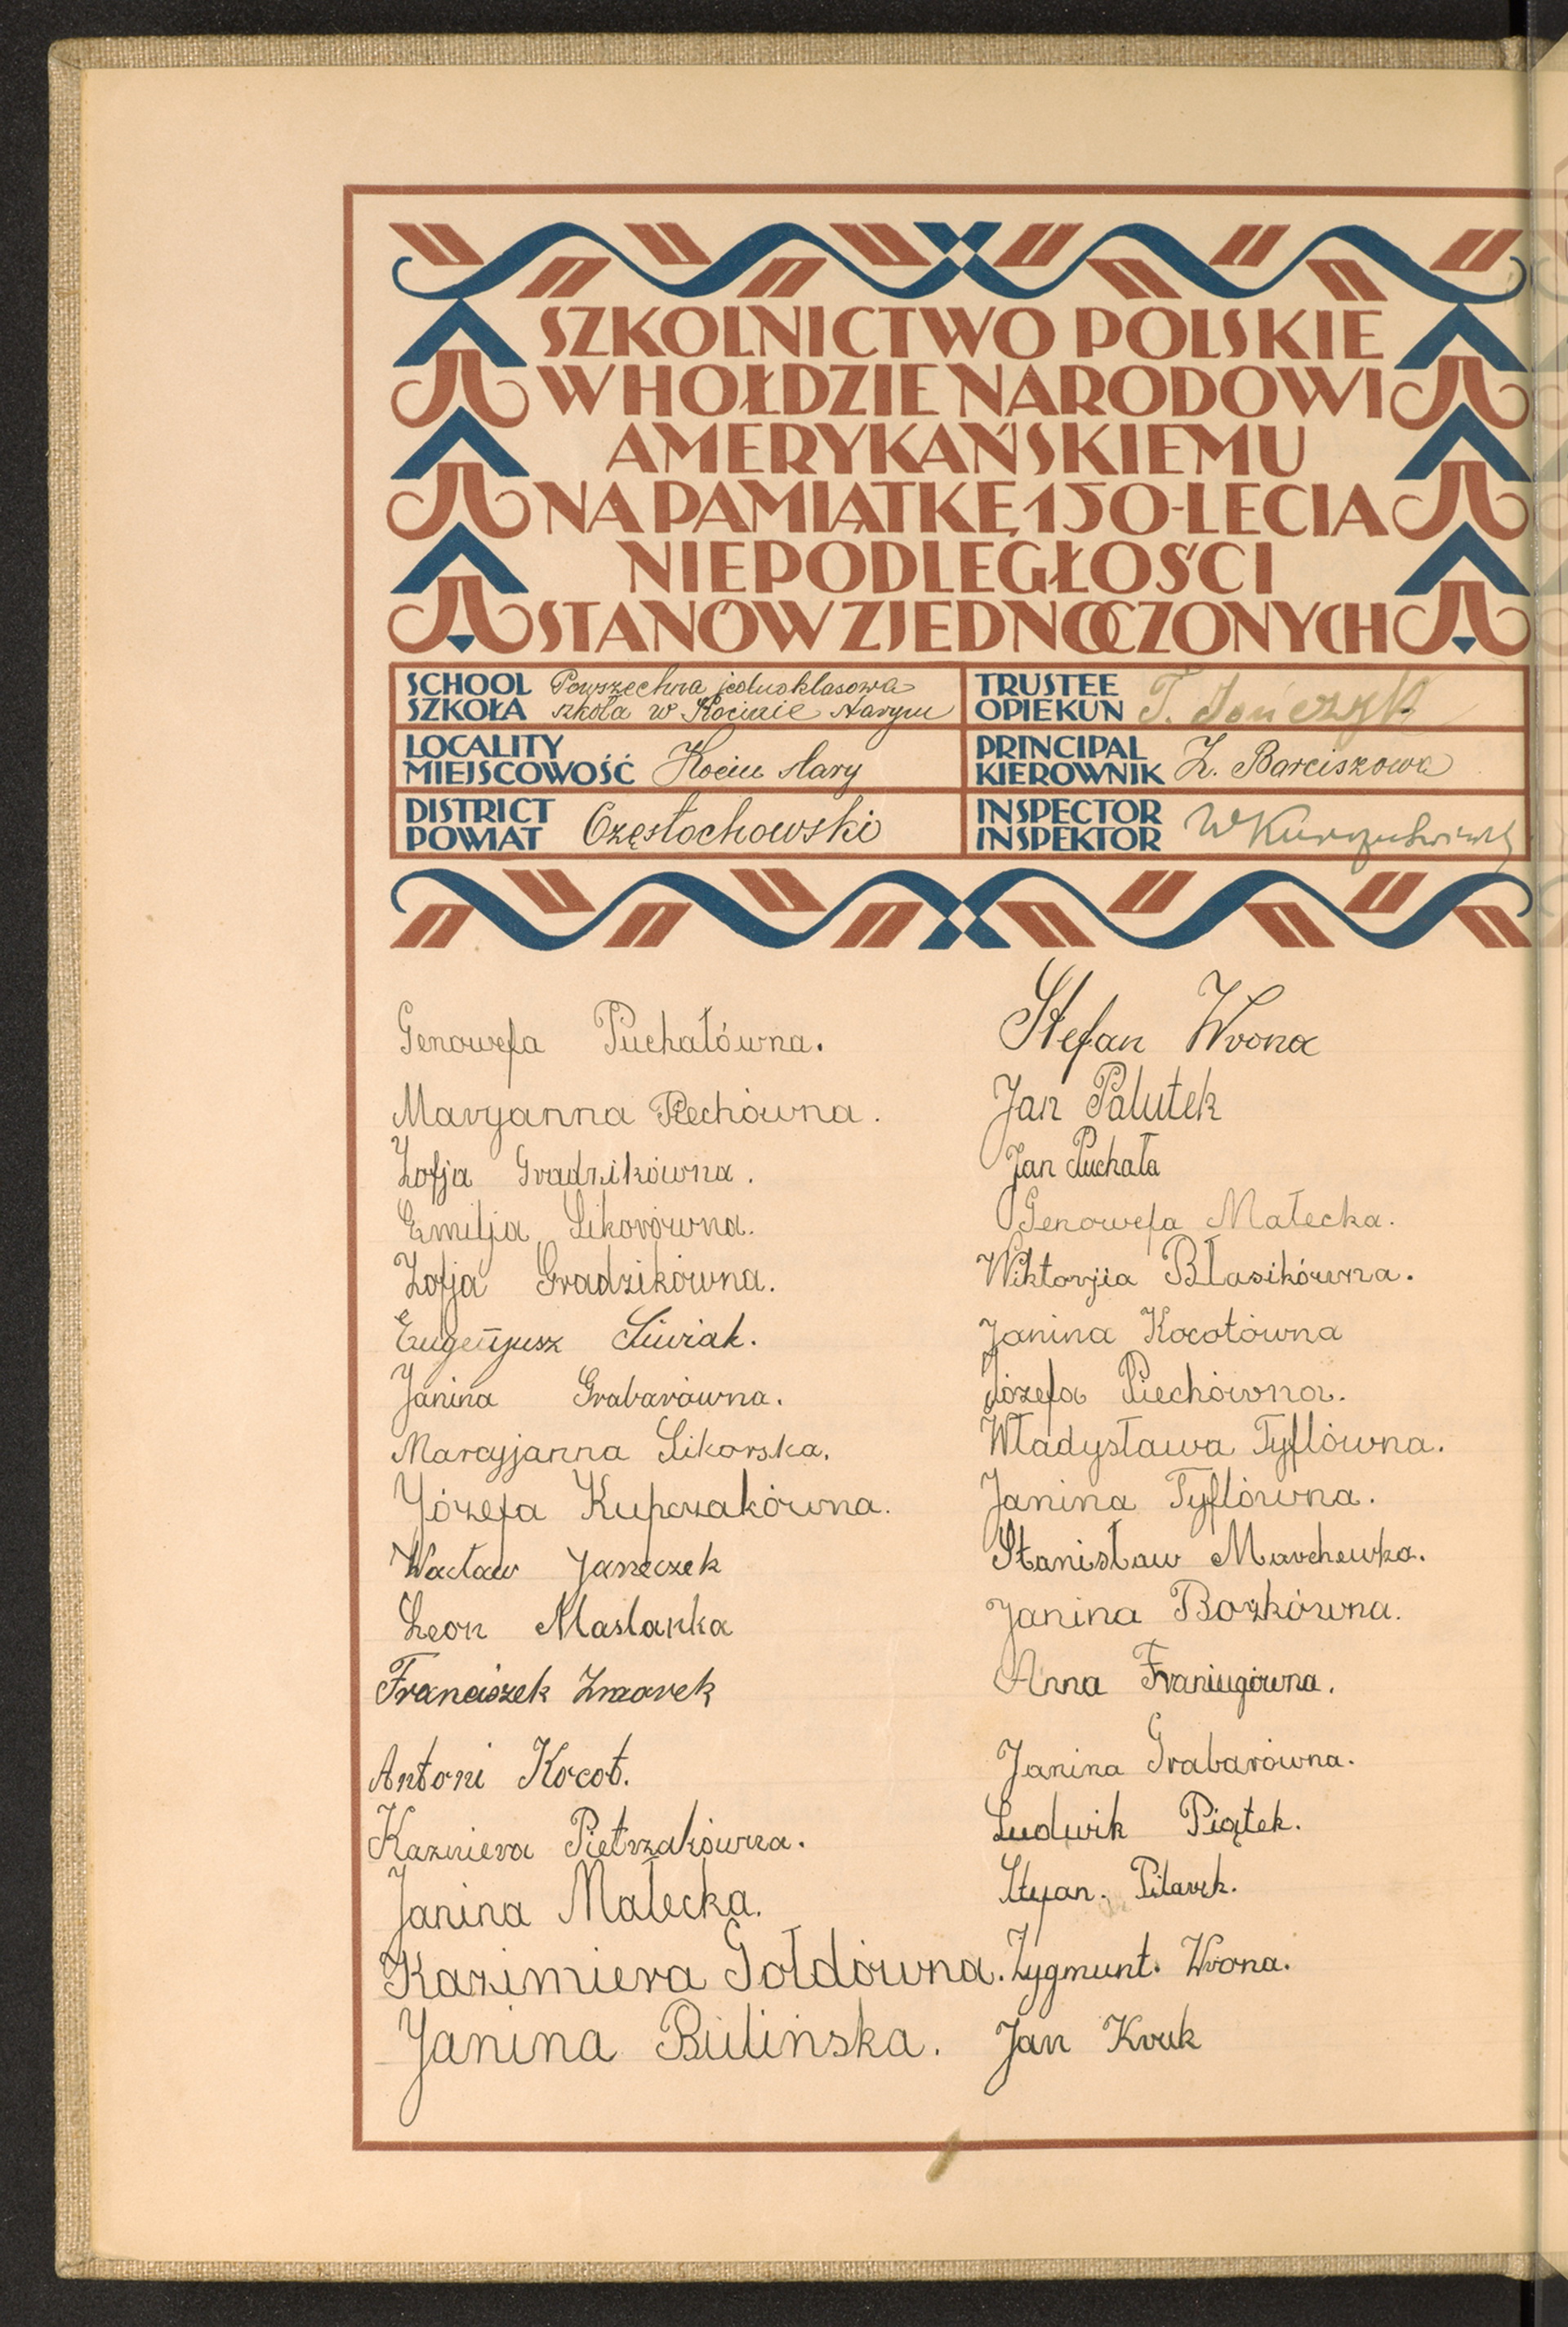 SZKOLNICTWO POLSKIE
W HOŁDZIE NARODOWI
AMERYKAŃSKIEMU
NA PAMIĄTKĘ 150-LECIA
NIEPODLEGŁOŚCI
STANÓW ZJEDNOCZONYCH
SCHOOL
SZKOŁA
Powszechna jednoklasowa
szkoła w Kocinie Starym
TRUSTEE
OPIEKUN
T. Jończyk
LOCALITY
MIEJSCOWOŚĆ
Kocin stary
PRINCIPAL
KIEROWNIK
Z. Barciszowa
DISTRICT
POWIAT
Częstochowski
INSPECTOR
INSPEKTOR
Genowefa Puchałówna.
Maryanna Piechówna.
Zofja Gradzikówna.
Emilja Sikorówna.
Zofja Gradzikówna.
Eugenjusz Siwiak.
Janina Grabarówna.
Marcyjanna Sikorska.
Józefa Kupczakówna.
Wacław Janeczek
Leon Maslanka
Franciszek Zmorek
Antoni Kocot.
Kazmiera Pietrzakówna.
Janina Małecka.
Kazimiera Gołdówna.
Janina Bilińska.
Stefan Wrona
Jan Palutek
Jan Puchała
Genowefa Małecka.
Wiktorjia Błasikówna.
Janina Kocotówna
Józefa Piechówna.
Władysława Tyflówna.
Janina Tyflówna.
Stanisław Marchewka.
Janina Borkówna.
Anna Franiugówna.
Janina Grabarówna.
Ludwik Piątek.
Pilarek.
Zygmunt. Wrona.
Jan Kruk